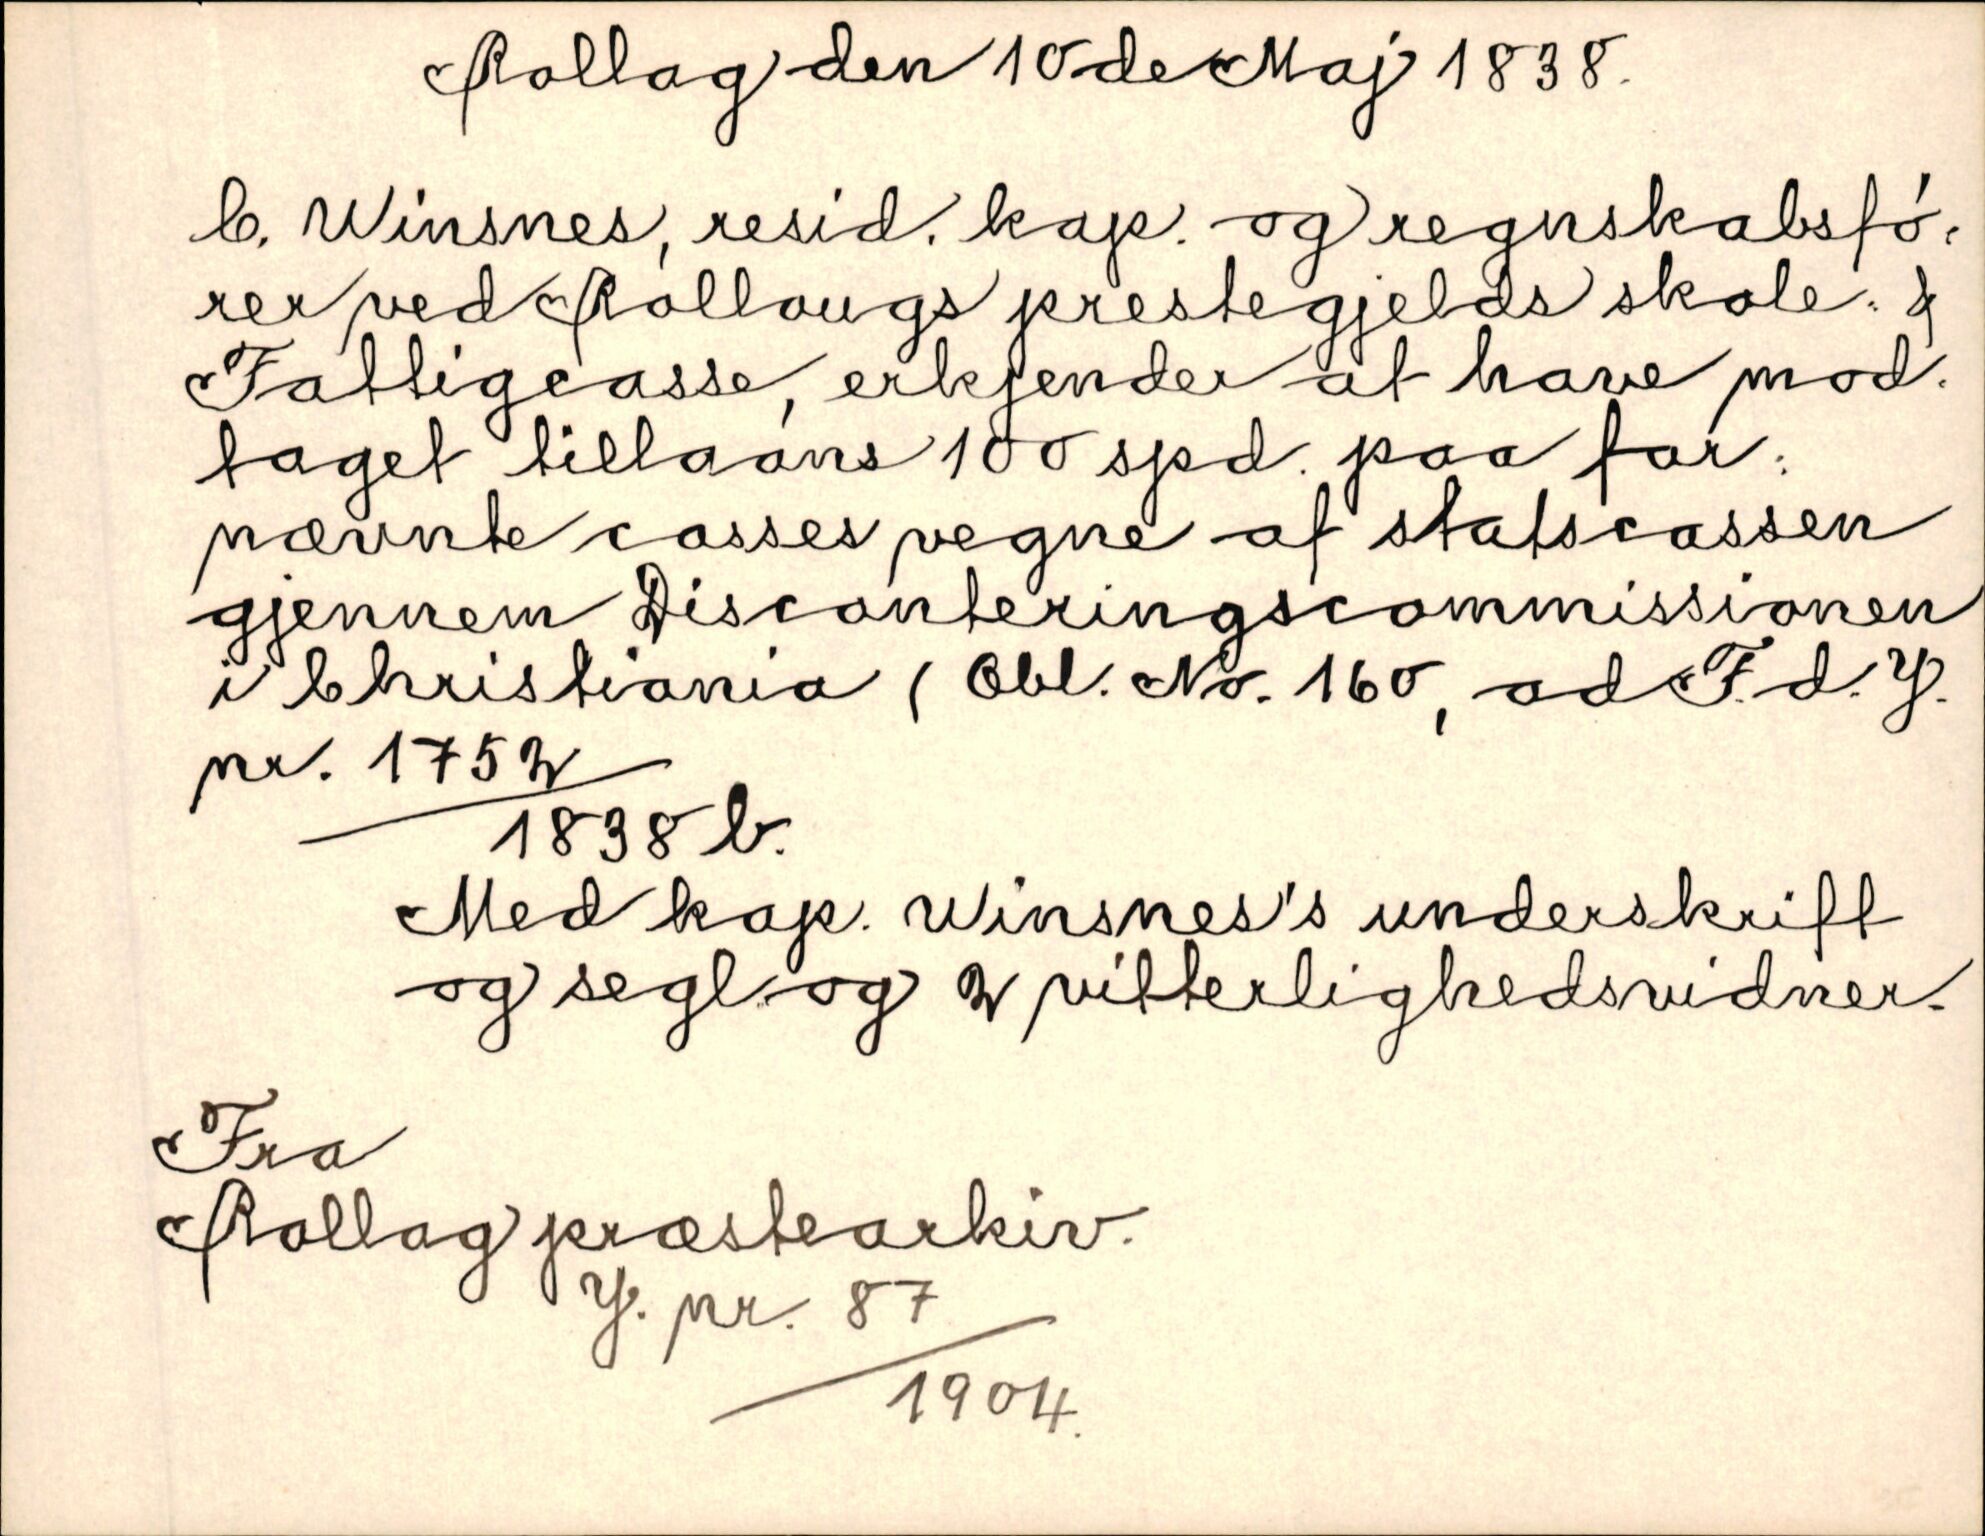 Rollag den 10de Maj 1838.
C. Winsnes, resid. kap. og regnskabsfö-
rer ved Rollougs prestegjelds skole- &
Fattigcasse, erkjender at have mod-
taget tillaans 100 spd. paa for-
nævnte casses vegne af statscassen
gjennem Disconteringscommissionen
i Christiania (Obl. No. 160, ad F. d. J.
nr. 1752
1838 b.
Med kap. Winsnes's underskrift
og segl og 2 vitterlighedsvidner.
Fra
Rollag præstearkiv.
J. nr. 87
1904.